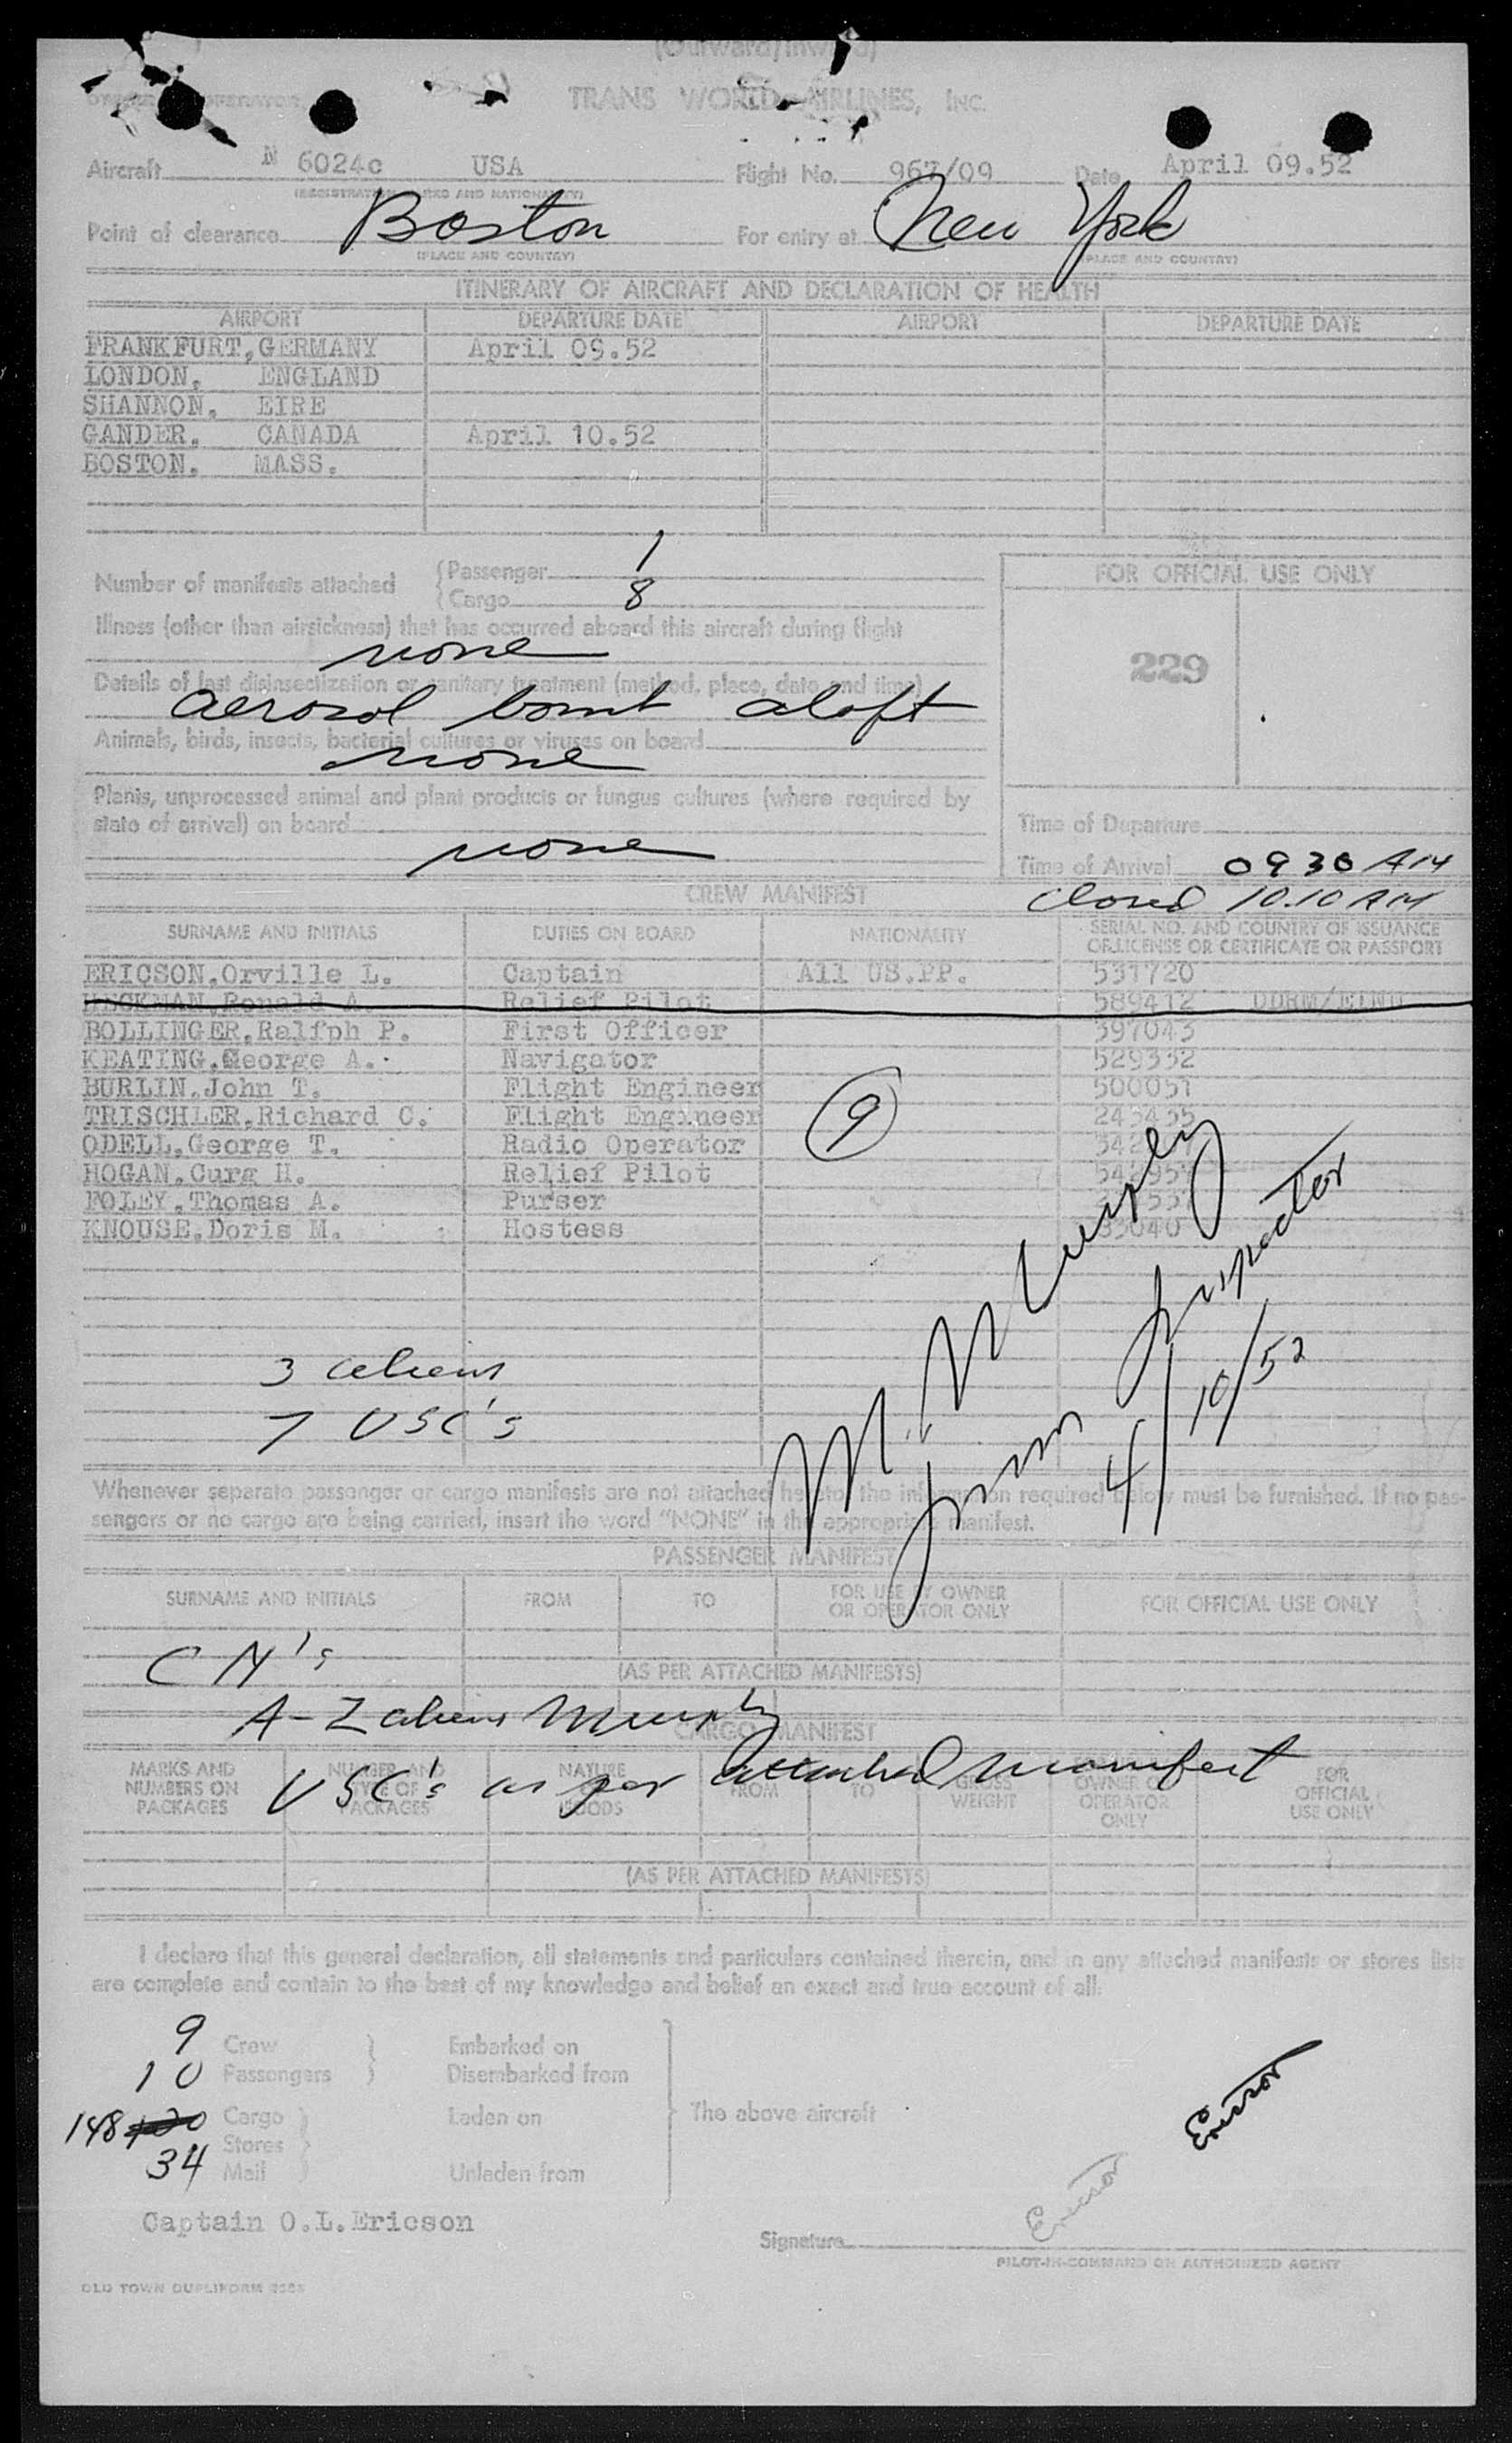 (Outward/Inward)
TRANS WORLD AIRLINES, INC.
Aircraft N 6024c USA Flight No. 967/09 Date April 09.52
(REGISTRATION MARKS AND NATIONALITY)
Point of clearance Boston For entry at New York
(PLACE AND COUNTRY) (PLACE AND COUNTRY)
ITINERARY OF AIRCRAFT AND DECLARATION OF HEALTH
AIRPORT DEPARTURE DATE AIRPORT DEPARTURE DATE
FRANKFURT, GERMANY April 09.52
LONDON. ENGLAND
SHANNON. EIRE
GANDER. CANADA April 10.52
BOSTON. MASS.
Number of manifests attached
Passenger 1
Cargo 8
FOR OFFICIAL USE ONLY
229
Illness (other than airsickness) that has occurred aboard this aircraft during flight
none
Details of last disinsectization or sanitary treatment (method, place, date and time)
aerosol bomb aloft
Animals, birds, insects, bacterial cultures or viruses on board
none
Plants, unprocessed animal and plant products or fungus cultures (where required by
state of arrival) on board
none
Time of Departure
Time of Arrival 0930 AM
Closed 10.10 AM
CREW MANIFEST
SURNAME AND INITIALS DUTIES ON BOARD NATIONALITY SERIAL NO. AND COUNTRY OF ISSUANCE
OF LICENSE OR CERTIFICATE OR PASSPORT
ERICSON.Orville L. Captain All US.PP. 531720
HECKMAN.Ronald A. Relief Pilot 589412
BOLLINGER.Ralfph P. First Officer 397043
KEATING.George A. Navigator 529332
BURLIN.John T. Flight Engineer 500051
TRISCHLER.Richard C. Flight Engineer
ODELL.George T. Radio Operator
HOGAN.Curg H. Relief Pilot
FOLEY.Thomas A. Purser
KNOUSE.Doris M. Hostess
9
M. N. Murphy
Imm Inspector
4/10/52
3 aliens
7 USC's
Whenever separate passenger or cargo manifests are not attached hereto, the information required below must be furnished. If no pas-
sengers or no cargo are being carried, insert the word "NONE" in the appropriate manifest.
PASSENGER MANIFEST
SURNAME AND INITIALS FROM TO FOR USE BY OWNER
OR OPERATOR ONLY FOR OFFICIAL USE ONLY
(AS PER ATTACHED MANIFESTS)
A-Z aliens Murphy
CARGO MANIFEST
USC's as per attached manifest
MARKS AND
NUMBERS ON
PACKAGES
NUMBER AND
TYPE OF
PACKAGES
NATURE
GOODS
FROM TO
GROSS
WEIGHT
OWNER OR
OPERATOR
ONLY
FOR
OFFICIAL
USE ONLY
(AS PER ATTACHED MANIFESTS)
I declare that this general declaration, all statements and particulars contained therein, and in any attached manifests or stores lists
are complete and contain to the best of my knowledge and belief an exact and true account of all:
9 Crew Embarked on
10 Passengers Disembarked from
148 Cargo Laden on The above aircraft
Stores
34 Mail Unladen from
Ericson
Ericson
Captain O.L.Ericson
Signature
PILOT-IN-COMMAND OR AUTHORIZED AGENT
OLD TOWN DUPLIFORM